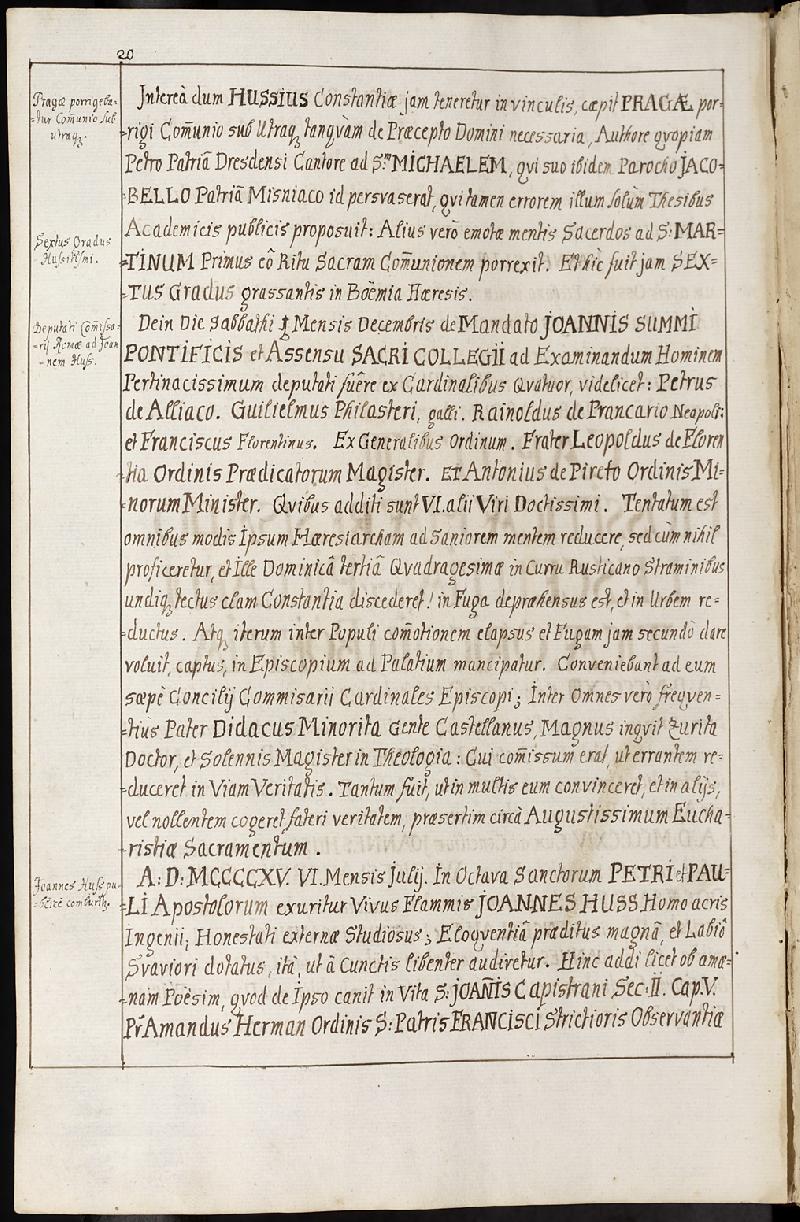 20
Pragæ porrigeba-
-tur Com̃unio sub
utraq;
Intereà dum HUSSIUS Constantiæ jam teneretur in vinculis, cæpit PRAGÆ por-
-rigi Com̃unio sub Utraq; tanqvàm de Præcepto Domini necessaria, Authore qvopiam
Petro Patriâ Dresdensi Cantore ad S. MICHAELEM, qvi suo ibidem Parocho JACO-
BELLO Patriâ Misniaco id persvaserat, qvi tamen errorem illum solùm Thesibus
Academicis publicis proposuit: Alius verò emotæ mentis Sacerdos ad S: MAR-
-TINUM Primus eô Ritu Sacram Com̃unionem porrexit. Et hic fuit jam SEX-
-TUS Gradus grassantis in Boëmia Hæresis.
Sextus Gradus
Hussitismi.
Dein Die Sabbathi 1 Mensis Decembris de Mandato JOANNIS SUMMI
PONTIFICIS et Assensu SACRI COLLEGII ad Examinandum Hominem
Pertinacissimum deputati fuêre ex Cardinalibus Qvatuor, videlicet: Petrus
de Alliaco. Guilielmus Philasteri, galli. Rainoldus de Prancario Neapolt:
et Franciscus Florentinus. Ex Generalibus Ordinum. Frater Leopoldus de Floren
-tia Ordinis Prædicatorum Magister. Et Antonius de Pireto Ordinis Mi-
-norum Minister. Qvibus additi sunt VI. alii Viri Doctissimi. Tentatum est
omnibus modis Ipsum Hæresiarcham ad Saniorem mentem reducere, sed cùm nihil
proficeretur, et Ille Dominicâ tertiâ Qvadragesimæ in Curru Rusticano Straminibus
undiq; tectus clam Constantia discederet! in Fuga depræhensus est, et in Urbem re-
-ductus. Atq; iterum inter Populi com̃otionem elapsus et Fugam jam secundò dare
voluit, captus, in Episcopium ad Palatium mancipatur. Conveniebant ad eum
sæpè Concilij Commisarij Cardinales Episcopi; Inter Omnes verò freqven-
-tius Pater Didacus Minorita Gente Castellanus, Magnus inqvit Zurita
Doctor, et Solennis Magister in Theologia: Cui com̃issum erat, ut errantem re-
-duceret in Viam Veritatis. Tantum fuit, ut in multis eum convinceret, et in alijs,
vel nollentem cogeret fateri veritatem, præsertim circà Augustissimum Eucha-
-ristiæ Sacramentum.
Deputati Com̃issa-
-rij Romæ ad Joan
-nem Huss.
A: D: MCCCCXV. VI. Mensis Julij. In Octava Sanctorum PETRI et PAU-
-LI Apostolorum exuritur Vivus Flammis JOANNES HUSS Homo acris
Ingenii; Honestati externæ Studiosus; Eloqventiâ præditus magnâ, et Labiô
Svaviori dotatus, ità, ut â Cunctis libenter audiretur. Hinc addi licet ob amæ-
-nam Poësim, qvod de Ipso canit in Vita S: JOAÑIS Capistrani Sec: II. Cap. V.
Pr̃ Amandus Herman Ordinis S: Patris FRANCISCI Strictioris Observantiæ
Joannes Huss pu-
-blicè comburitr.